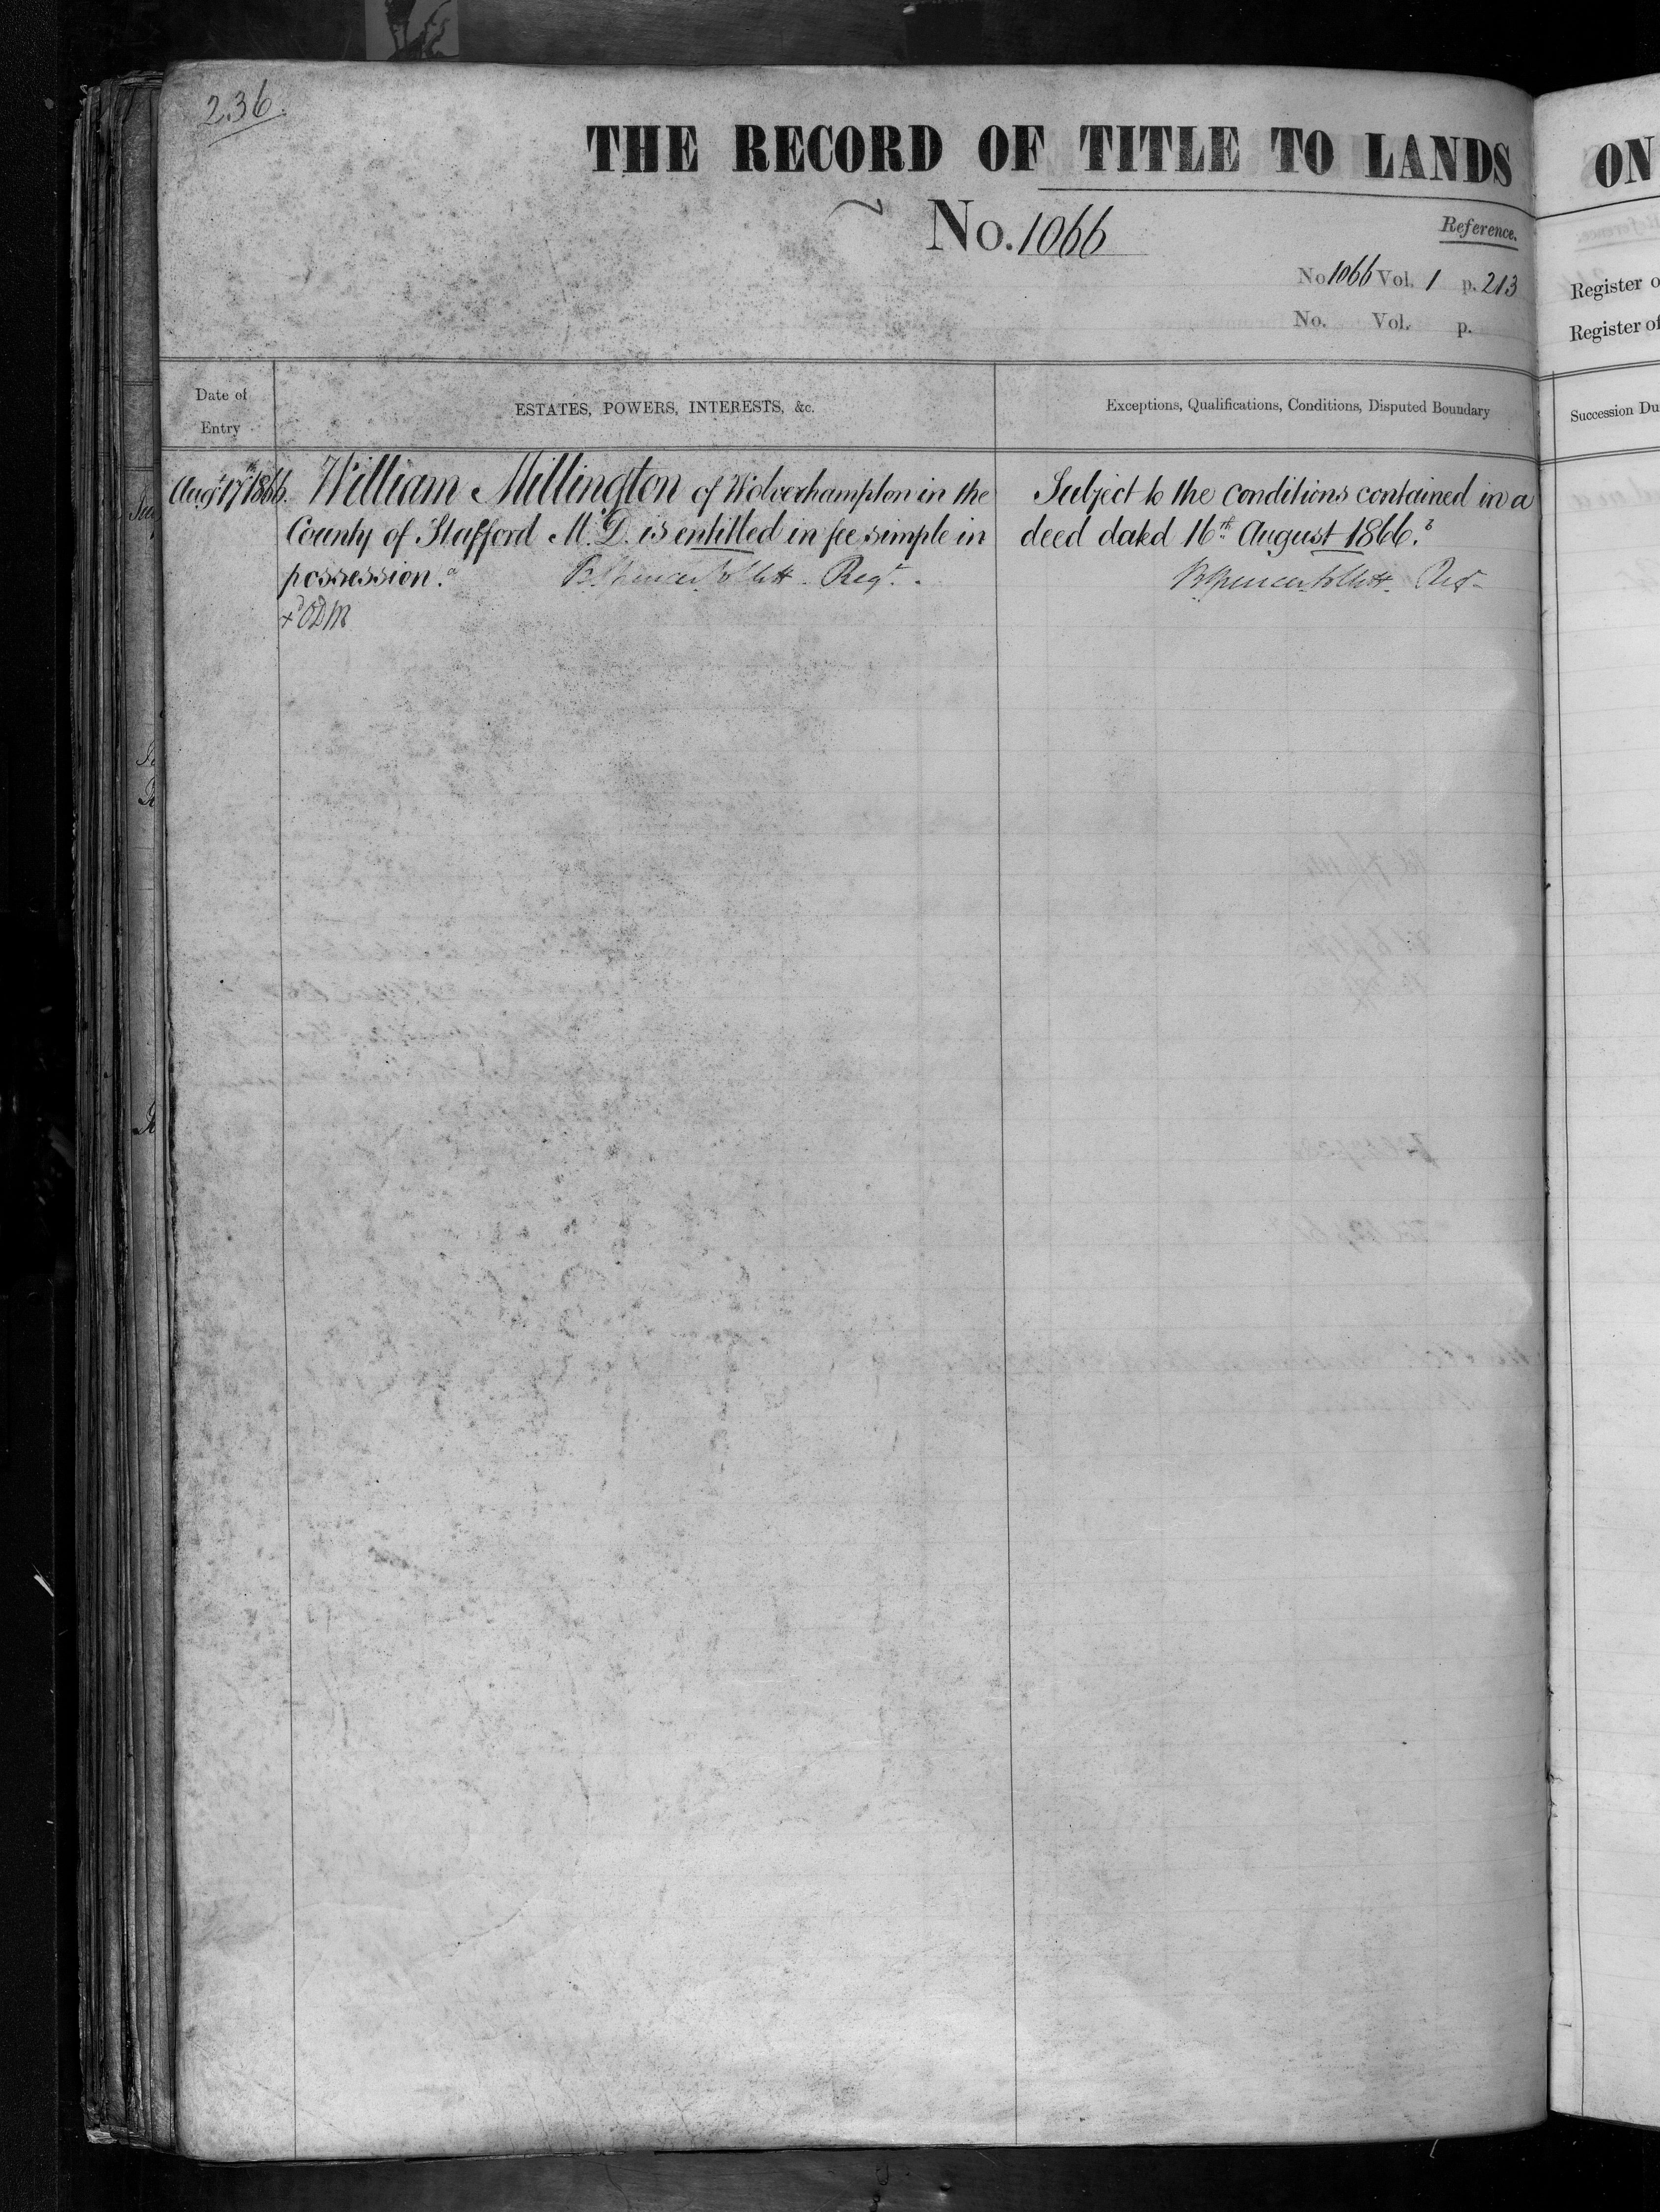 236.
THE RECORD OF TITLE TO LANDS
No. 1066
Reference.
No 1066 Vol. 1 p. 213
No. Vol. p.
Date of
Entry
ESTATES, POWERS, INTERESTS, &c.
Exceptions, Qualifications, Conditions, Disputed Boundary
Augt 17th 1866. William Millington of Wolverhampton in the
County of Stafford M.D. is entitled in fee simple in
possession.
Regr.
Subject to the conditions contained in a
deed dated 16th August 1866.
Regr
ON
Register o
Register of
Succession Du